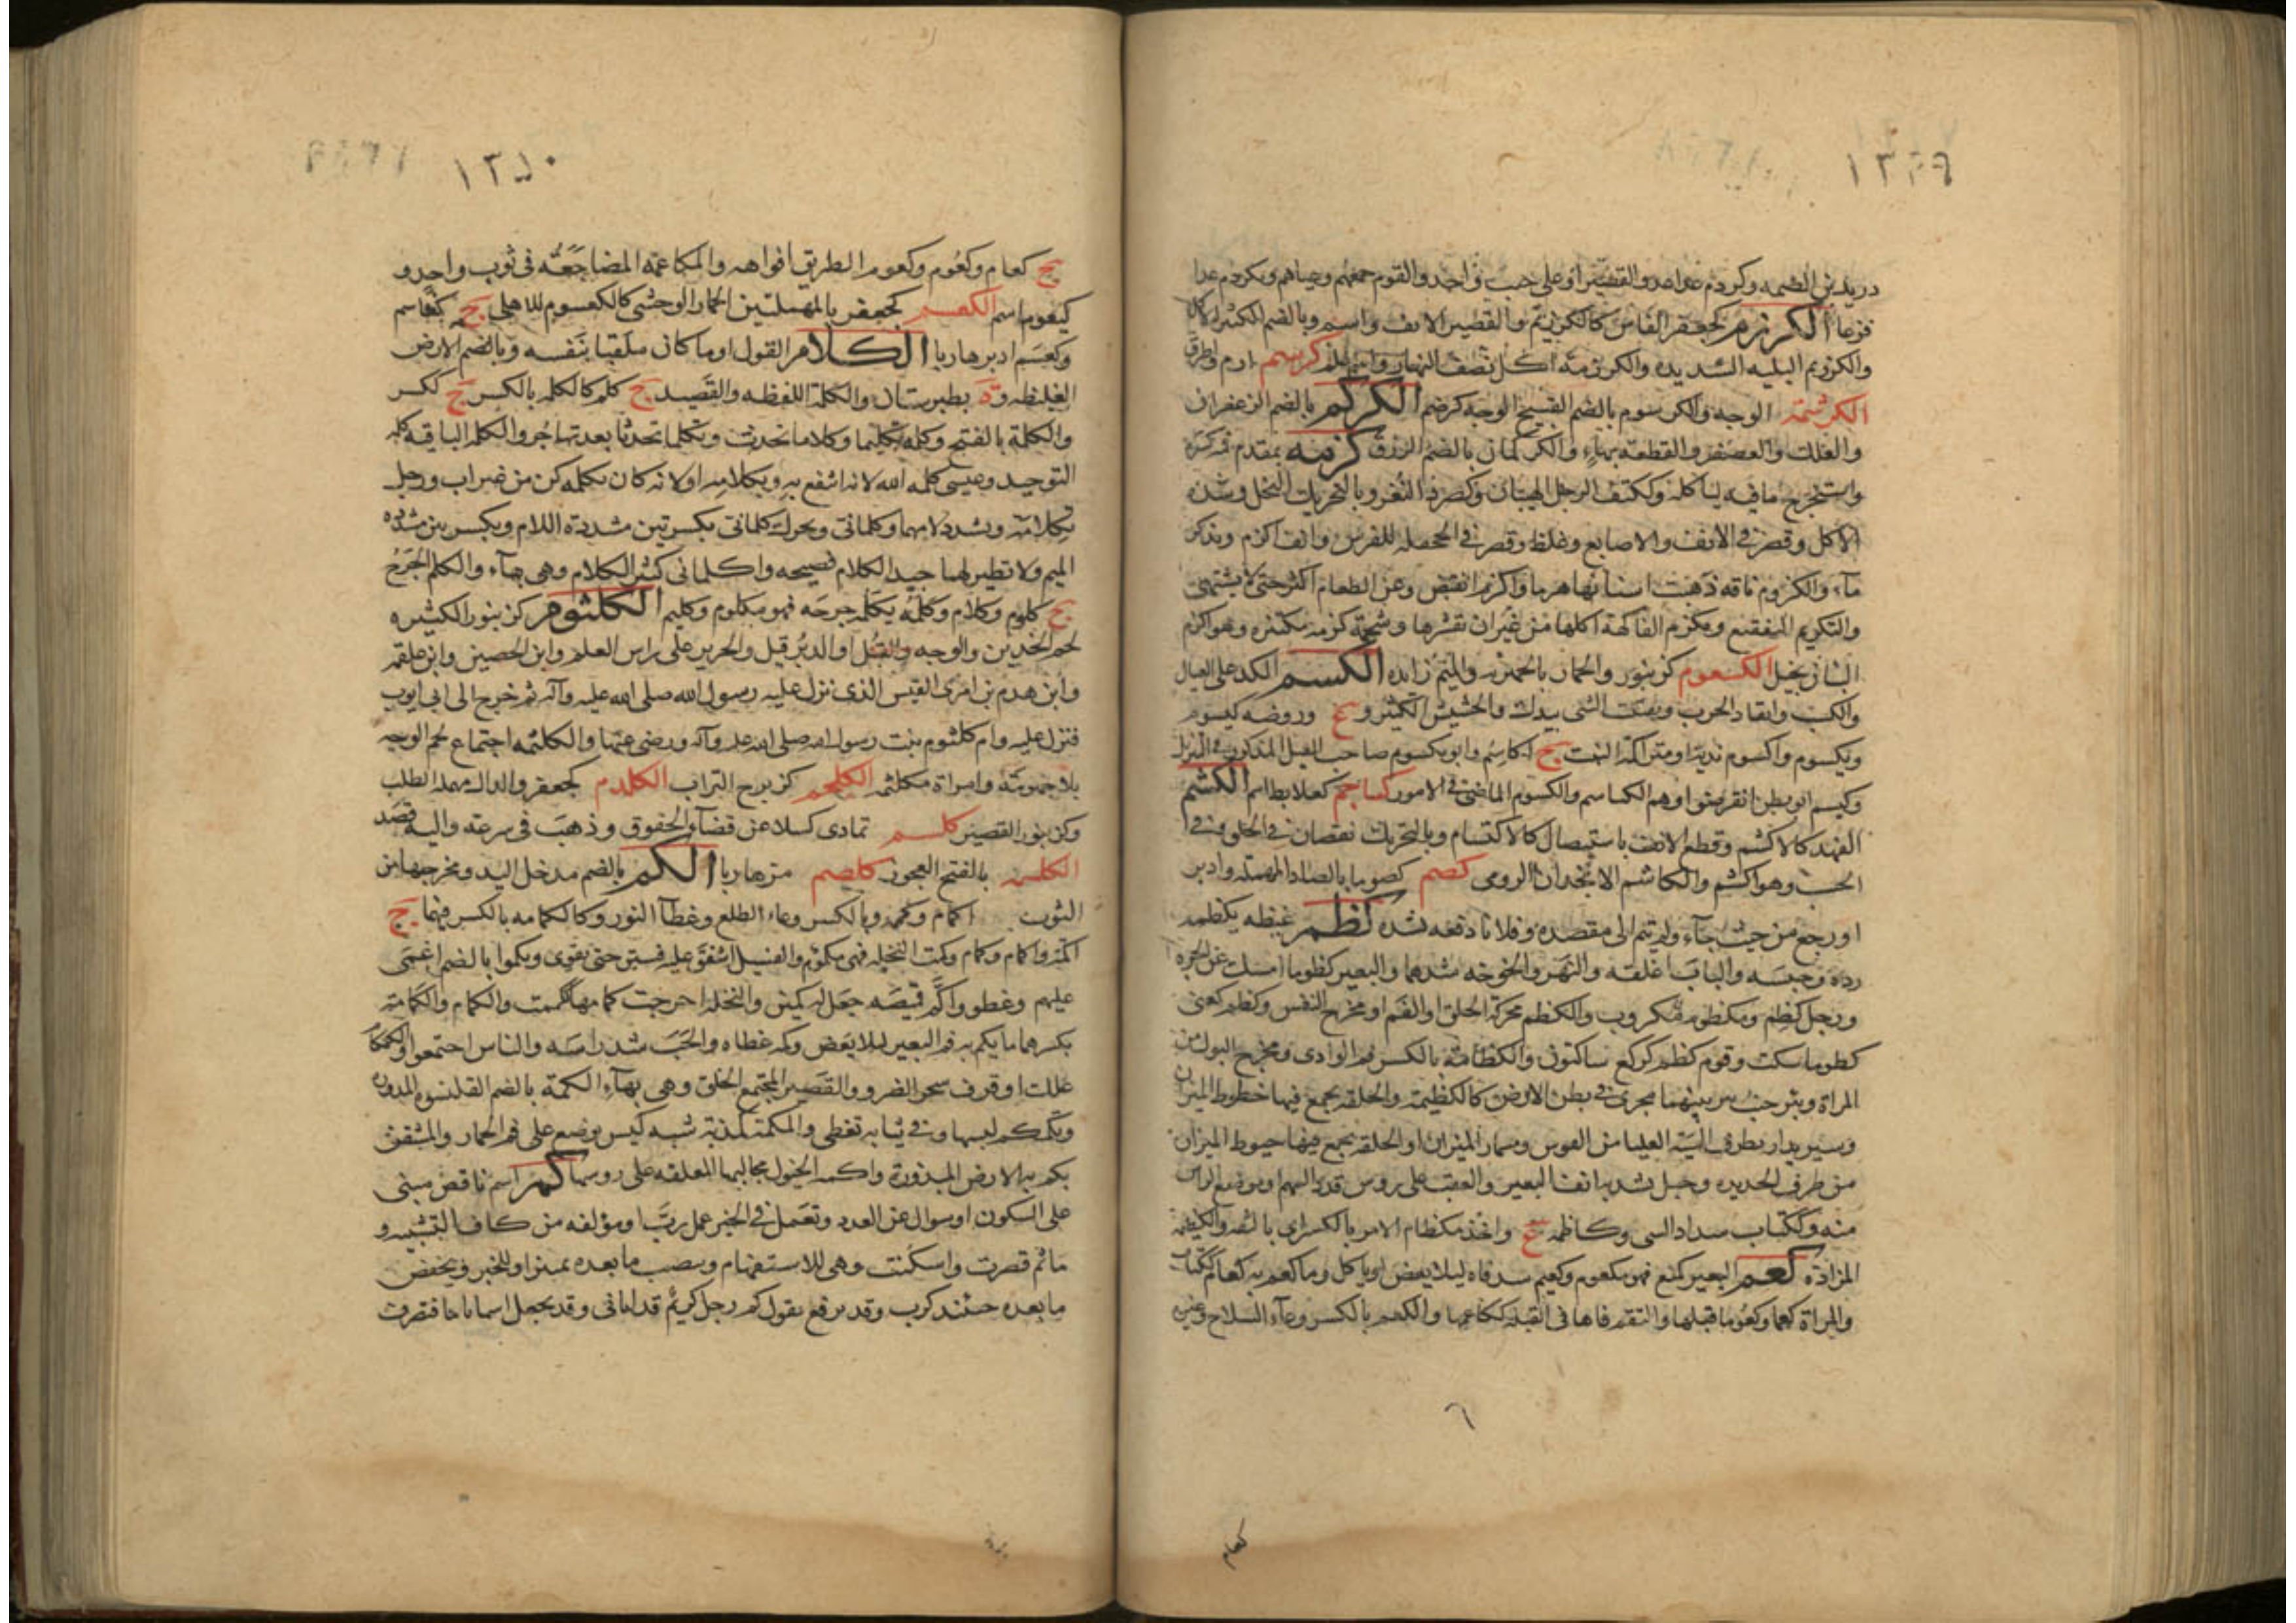 ١٣٤٩
دريد بن الصمه وكردم عدا عدو القصير او على جنب واحد والقوم جمعهم وعباهم وتكردم عدا
فزعا الكرزم كجعفر الفاس كالكرزيم والقصير الانف واسم وبالضم الكثير الاكل
والكرزيم البليه الشديده والكرزمة اكل نصف النهار كرسم ارم واطرق
الكرشمة الوجه والكرشوم بالضم القبيح الوجه كرضم الكركم بالضم الزعفران
والعلك والعصفر والقطعة بهاء والكركمان بالضم الرزق كزمه بمقدم فمه كسره
واستخرج ما فيه لياكله وككتف الرجل الهيبان وكصرد النغر وبالتحريك البخل وشدة
الاكل وقصر فى الانف والاصابع وغلظ وقصر فى الجحفلة للفرس وانف اكزم ويد كز
ماء والكزوم ناقه ذهبت اسنانها هرما واكزم انقبض وعن الطعام اكثر حتى لا يشتهى
والتكزيم التقفيع وتكزم الفاكهة اكلها من غير ان تقشرها وشحمة كزمه مكتنزه وهو اكزم
البنان بخيل الكسعوم كزنبور والحمار بالحميريه والميم زايده الكسم الكد على العيال
والكسب وايقاد الحرب وتفتيت الشى بيدك والحشيش الكثير و ع وروضه كيسوم
ويكسوم واكسوم نديه او متراكمة النبت ج اكاسم وابو يكسوم صاحب الفيل المذكور فى التنزيل
وكيسم ابو بطن انقرضوا وهم الكياسم والكسوم الماضى فى الامور كساجم كعلابط اسم الكشم
الفهد كالاكشم وقطع الانف باستيصال كالاكتشام وبالتحريك نقصان فى الخلق وفى
الحسب وهو اكشم والكاشم الانجدان الرومى كصم كصوما بالصاد المهملة وادبر
او رجع من حيث جآء ولم يتم الى مقصده وفلانا دفعه بشده كظم غيظه يكظمه
رده وحبسه والباب اغلقه والنهر والخوخه سدهما والبعير كظوما امسك عن الجره
ورجل كظيم ومكظوم مكروب والكظم محركة الحلق او الفم او مخرج النفس وكظم كعنى
كظوما سكت وقوم كظم كركع ساكتون والكظامة بالكسر فم الوادى ومخرج البول من
المراة وبئر جنب بئر بينهما مجرى فى بطن الارض كالكظيمة والحلقة يجمع فيها خطوط الميزان
وسير يدار بطرف السية العليا من القوس ومسمار الميزان او الحلقة يجمع فيها خيوط الميزان
من طرف الحديده وحبل يشد به انف البعير والعقب على روس قذذ السهم وموضع الراس
منه وككتاب سداد الشى وكاظمه ع واخذ بكظام الامر بالكسر اى بالثقة والكظيمة
المزادة كعم البعير كمنع فهو مكعوم وكعيم شد فاه ليلا يعض او ياكل وما كعم به كعام ككتاب
والمراة كعما وكعوما قبلها والتقم فاها فى القبلة ككاعمها والكعم بالكسر وعآء السلاح وغيره
٦
كعام
١٣٥٠
ج كعام وكعوم وكعوم الطريق افواهه والمكاعمة المضاجعة فى ثوب واحد و
كيعوم اسم الكعسم كجعفر بالمهملتين الحمار الوحشى كالكعسوم للاهلى ج كعاسم
وكعسم ادبر هاربا الكلام القول او ما كان مكتفيا بنفسه وبالضم الارض
الغليظه وة بطبرستان والكلمة اللفظه والقصيد ج كلم كالكلمه بالكسر ج ككسر
والكلمة بالفتح وكلمه تكليما وكلاما تحدث وتكلما تحدثا بعد تهاجر والكلمة الباقيه كلمة
التوحيد وعيسى كلمه الله لانه انتفع به وبكلامه او لانه كان بكلمه كن من غير اب ورجل
تكلامه وتشدد لامهما وكلمانى ويحرك كلمانى بكسرتين مشددة اللام وبكسرتين مشددة
الميم ولا نظير لهما جيد الكلام فصيحه واكلمانى كثير الكلام وهى بهآء والكلم الجرح
ج كلوم وكلام وكلمه يكلمه جرحه فهو مكلوم وكليم الكلثوم كزنبور الكثيره
لحم الخدين والوجه والفيل او الدبر قيل والحرير على راس العلم وابن الحصين وابن علقمه
وابن هدم بن امرى القيس الذى نزل عليه رسول الله صلى الله عليه وآله ثم خرج الى ابى ايوب
فنزل عليه وام كلثوم بنت رسول الله صلى الله عليه وآله ورضى عنها والكلثمه اجتماع لحم الوجه
بلا جهومة وامراة مكلثمه الكلجم كزبرج التراب الكلدم كجعفر والدال مهملة الصلب
وكزنبور القصير كلسم تمادى كسلا عن قضآء الحقوق وذهب فى سرعة واليه قصد
الكلشمه بالفتح العجوز كلصم مر هاربا الكم بالضم مدخل اليد ومخرجها من
الثوب اكمام وكممه وبالكسر وعاء الطلع وغطآ النور وكالكمامه بالكسر فيهما ج
اكمة واكمام وكمام وكمت النخيله فهى مكموم والفسيل اشفق عليه فستر حتى يقوى وتكموا بالضم اغمى
عليهم وغطوا واكم قميصه جعل له كمين والنخلة اخرجت كمامها ككممت والكمام والكمامة
بكسرهما ما يكم به فم البعير ليلا يعض وكمه غطاه والحب سد راسه والناس اجتمعوا والكمكام
علك او قرف شجر الضرو والقصير المجتمع الخلق وهى بهآء الكمة بالضم القلنسوه المدوره
وتكمكم لبسها وفى ثيابه تغطى والمكمة كمذبة شبه كيس يوضع على فم الحمار والمشقف
يكم به الارض المبذورة واكمه الخيول مخاليها المعلقه على روسها كم اسم ناقص مبنى
على السكون او سوال عن العدد وتعمل فى الخبر عمل رب او مؤلفه من كاف التشبيه و
ما ثم قصرت واسكنت وهى للاستفهام وينصب ما بعده تميزا وللخبر ويخفض
ما بعده حينئذ كرب وقد يرفع تقول كم رجل كريم قد اتانى وقد يجعل اسما تاما فتصرف